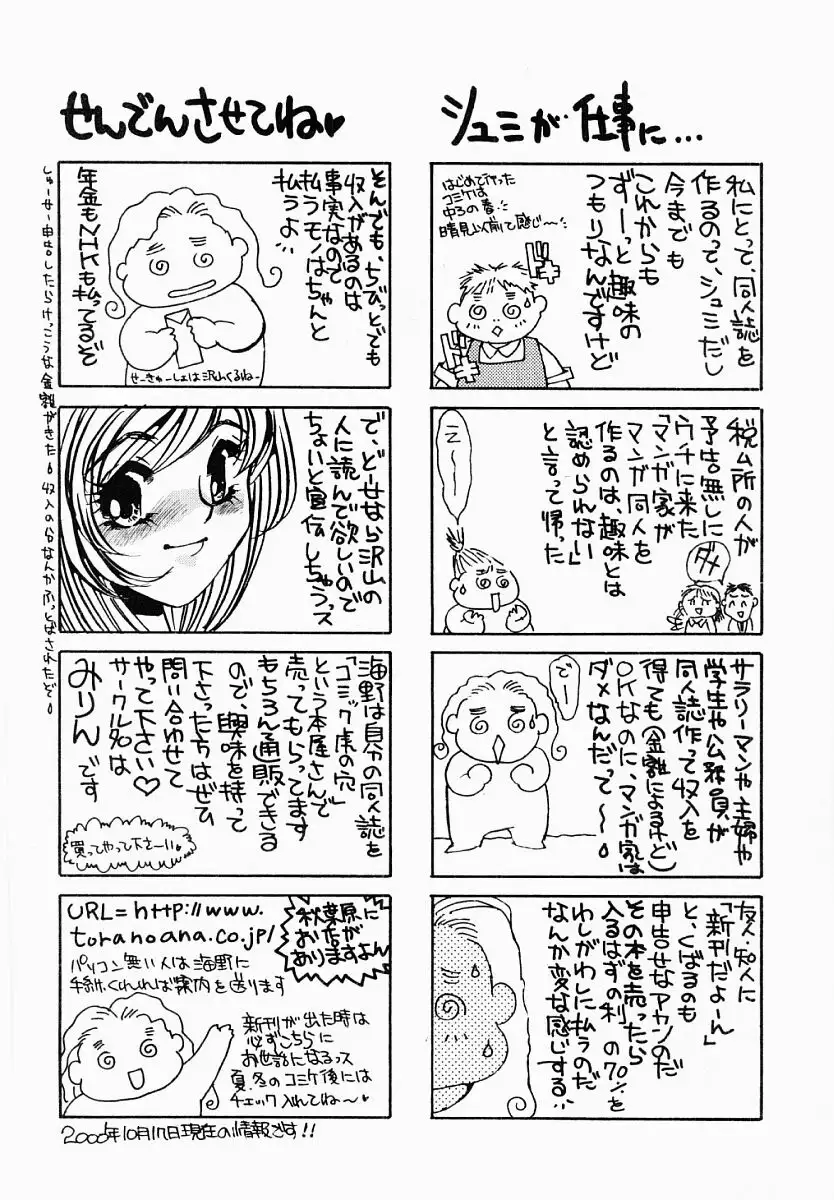 シュミが仕事に…
私にとって、同人誌を
作るのって、シュミだし
今までも
これからも
ずーっと趣味の
つもりなんですけど
はじめて行った
コミケは
中3の春
晴見以前って感じ〜
税ム所の人が
予告無しに
ウチに来た
「マンガ家が
マンガ同人を
作るのは、趣味とは
認められない」
と言って帰った
ダメ
えー
サラリーマンや主婦や
学生や公務員が
同人誌作って収入を
得ても(金額によるけど)
OKなのに、マンガ家は
ダメなんだって〜
でー
友人・知人に
「新刊だよーん」
と、くばるのも
申告せなアカンのだ
その本を売ったら
入るはずの利 の70%を
わしがわしに払うのだ
なんか変な感じする
せんでんさせてね♥
そんでも、ちびっとでも
収入があるのは
事実なので
払うモノはちゃんと
払うよ
年金もNHKも払ってるぞ
せーきゅーしょは沢山くるねー
しゅーせー申告したらけっこうな金額がきた 収入の
なんかふっとばされたぞ
で、ど〜せなら沢山の
人に読んで欲しいので
ちょいと宣伝しちゃうっス
海野は自分の同人誌を
「コミック虎の穴」
という本屋さんで
売ってもらってます
もちろん通販できる
ので、興味を持って
下さった方はぜひ
問い合わせて
やって下さい♡
サークル名は
みりんです
買ってやって下さーい♥
URL=http://www.
toranoana.co.jp/
秋葉原に
お店が
ありますよん
パソコン無い人は海野に
手紙くれれば案内を送ります
新刊が出た時は
必ずこちらに
お世話になるっス
夏、冬のコミケ後には
チェック入れてね〜♥
2000年10月17日現在の情報です!!